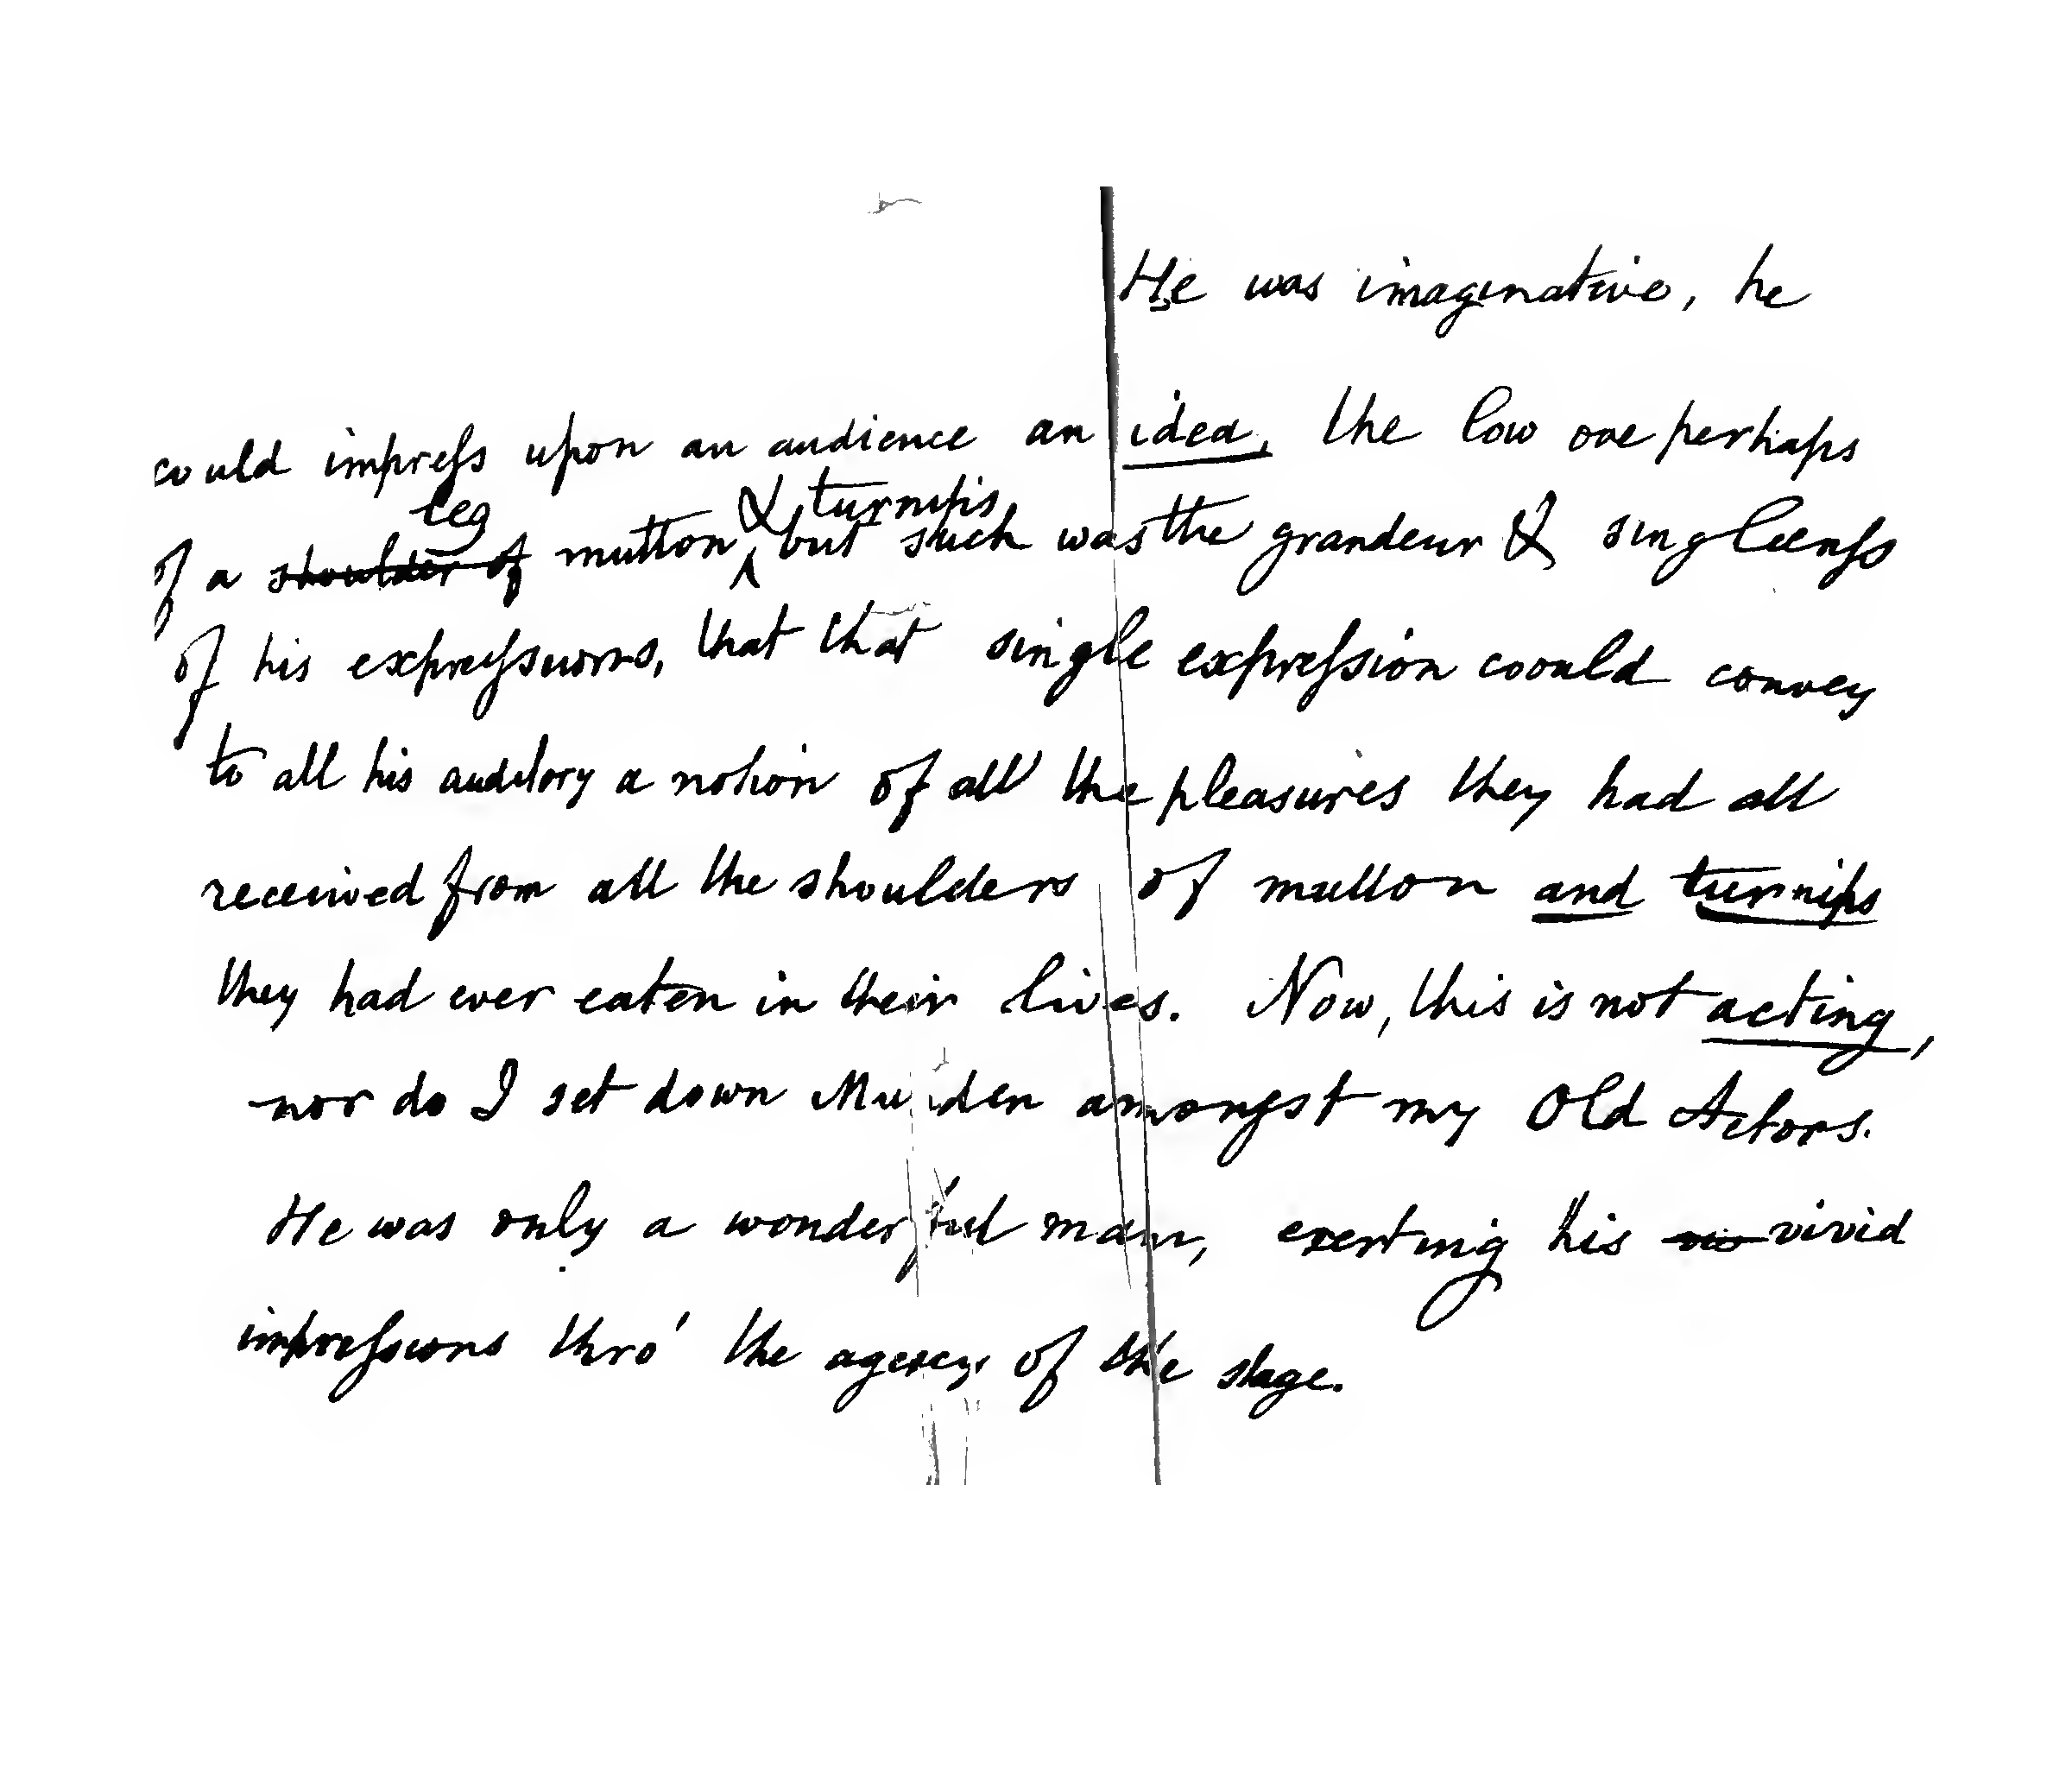 He was imaginative, he
could impress upon an audience an idea, the low one perhaps
of a shoulder of leg mutton & turnips but such was the grandeur & singleness
of his expressions, that that single expression coould convey
to all his auditory a notion of all the pleasures they had all
received from all the shoulders of mutton and turnips
they had ever eaten in their lives. Now, this is not acting,
nor do I set down Munden amongst my Old Actors.
He was only a wonderful man, exerting his vivid
impressions thro' the agency of the stage.